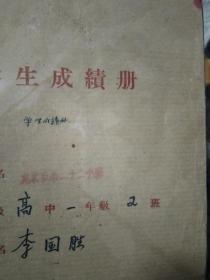 生成績册
学生成绩册
名
高中一年級2班
名 李国胜